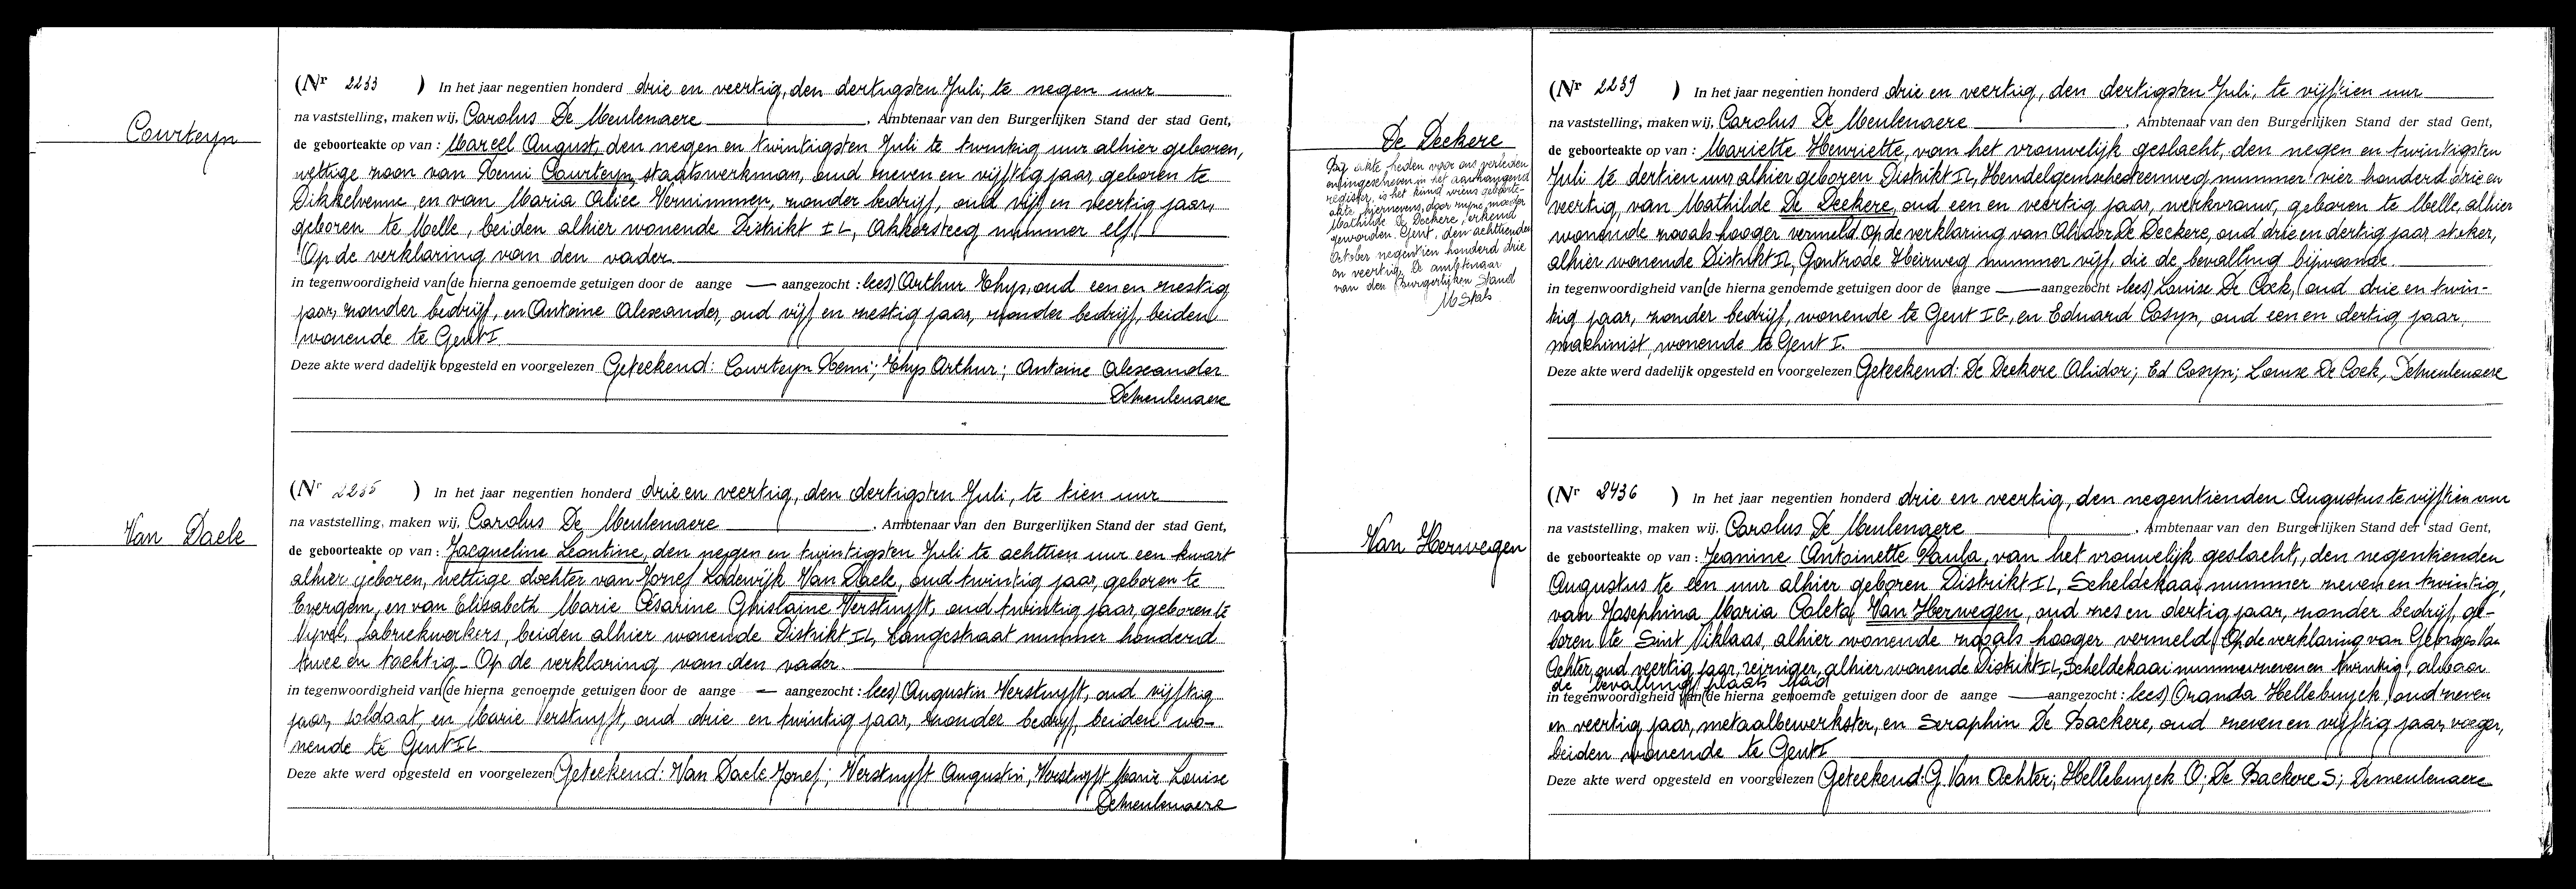 Courteyn
(Nr 2233 ) In het jaar negentien honderd drie en veertig, den dertigsten Juli, te negen uur
na vaststelling, maken wij, Carolus De Meulenaere , Ambtenaar van den Burgerlijken Stand der stad Gent,
de geboorteakte op van : Marcel August, den negen en twintigsten Juli te twintig uur alhier geboren,
wettige zoon van Remi Courteyn, staatswerkman, oud zeven en vijftig jaar, geboren te
Dikkelvenne, en van Maria Alice Vernimmen, zonder bedrijf, oud vijf en veertig jaar,
geboren te Melle, beiden alhier wonende Distrikt IL, Akkersteeg nummer elf.
Op de verklaring van den vader.
in tegenwoordigheid van (de hierna genoemde getuigen door de aange — aangezocht : lees) Arthur Thys, oud een en zestig
jaar, zonder bedrijf, en Antoine Alexander, oud vijf en zestig jaar, zonder bedrijf, beiden
wonende te Gent I.
Deze akte werd dadelijk opgesteld en voorgelezen Geteekend: Courteyn Remi; Thys Arthur; Antoine Alexander
Demeulenaere
Van Daele
(Nr 2235 ) In het jaar negentien honderd drie en veertig, den dertigsten Juli, te tien uur
na vaststelling, maken wij, Carolus De Meulenaere , Ambtenaar van den Burgerlijken Stand der stad Gent,
de geboorteakte op van : Jacqueline Leontine, den negen en twintigsten Juli te achttien uur een kwart
alhier geboren, wettige dochter van Jozef Lodewijk Van Daele, oud twintig jaar, geboren te
Evergem, en van Elisabeth Marie Césarine Ghislaine Verstuyft, oud twintig jaar, geboren te
Nijvel, fabriekwerkers, beiden alhier wonende Distrikt IL, Langestraat nummer honderd
twee en tachtig. Op de verklaring van den vader.
in tegenwoordigheid van (de hierna genoemde getuigen door de aange — aangezocht : lees) Augustin Verstuyft, oud vijftig
jaar, soldaat en Marie Verstuyft, oud drie en twintig jaar, zonder bedrijf, beiden wo-
nende te Gent IL.
Deze akte werd opgesteld en voorgelezen Geteekend: Van Daele Jozef; Verstuyft Augustin; Verstuyft Marie Louise
Demeulenaere
De Deckere
Bij akte, heden voor ons verleden
en ingeschreven in het aanhangend
register, is het kind wiens geboorte-
akte hiernevens, door zijne moeder
Mathilde De Deckere, erkend
geworden. Gent, den achttienden
October negentien honderd drie
en veertig. De ambtenaar
van den Burgerlijken Stand
(Nr 2239 ) In het jaar negentien honderd drie en veertig, den dertigsten Juli, te vijftien uur
na vaststelling, maken wij, Carolus De Meulenaere , Ambtenaar van den Burgerlijken Stand der stad Gent,
de geboorteakte op van : Mariette Henriette, van het vrouwelijk geslacht, den negen en twintigsten
Juli te dertien uur alhier geboren Distrikt IL, Hundelgemschesteenweg nummer vier honderd drie en
veertig, van Mathilde De Deckere, oud een en veertig jaar, werkvrouw, geboren te Melle, alhier
wonende zooals hooger vermeld. Op de verklaring van Alidor De Deckere, oud drie en dertig jaar stoker,
alhier wonende Distrikt IL, Gontrode Heirweg nummer vijf, die de bevalling bijwoonde.
in tegenwoordigheid van (de hierna genoemde getuigen door de aange — aangezocht : lees) Louise De Cock, oud drie en twin-
tig jaar, zonder bedrijf, wonende te Gent IE, en Eduard Cosyn, oud een en dertig jaar,
machinist, wonende te Gent I.
Deze akte werd dadelijk opgesteld en voorgelezen Geteekend: De Deckere Alidor; Ed Cosyn; Louise De Cock, Demeulenaere
Van Herwegen
(Nr 2436 ) In het jaar negentien honderd drie en veertig, den negentienden Augustus te vijftien uur
na vaststelling, maken wij, Carolus De Meulenaere , Ambtenaar van den Burgerlijken Stand der stad Gent,
de geboorteakte op van : Jeanine Antoinette Paula, van het vrouwelijk geslacht, den negentienden
Augustus te één uur alhier geboren Distrikt IL, Scheldekaai nummer zeven en twintig,
van Josephina Maria Coleta Van Herwegen, oud zes en dertig jaar, zonder bedrijf, ge-
boren te Sint Niklaas, alhier wonende zooals hooger vermeld. Op de verklaring van Georges Van
Achter, oud veertig jaar, reiniger, alhier wonende Distrikt IL, Scheldekaai nummer zeven en twintig, alwaar
de bevalling plaats had
in tegenwoordigheid van (de hierna genoemde getuigen door de aange — aangezocht : lees) Oranda Hellebuyck, oud zeven
en veertig jaar, metaalbewerkster, en Seraphin De Backere, oud zeven en vijftig jaar, voeger,
beiden wonende te Gent I
Deze akte werd opgesteld en voorgelezen Geteekend: G. Van Achter; Hellebuyck O; De Backere S; Demeulenaere